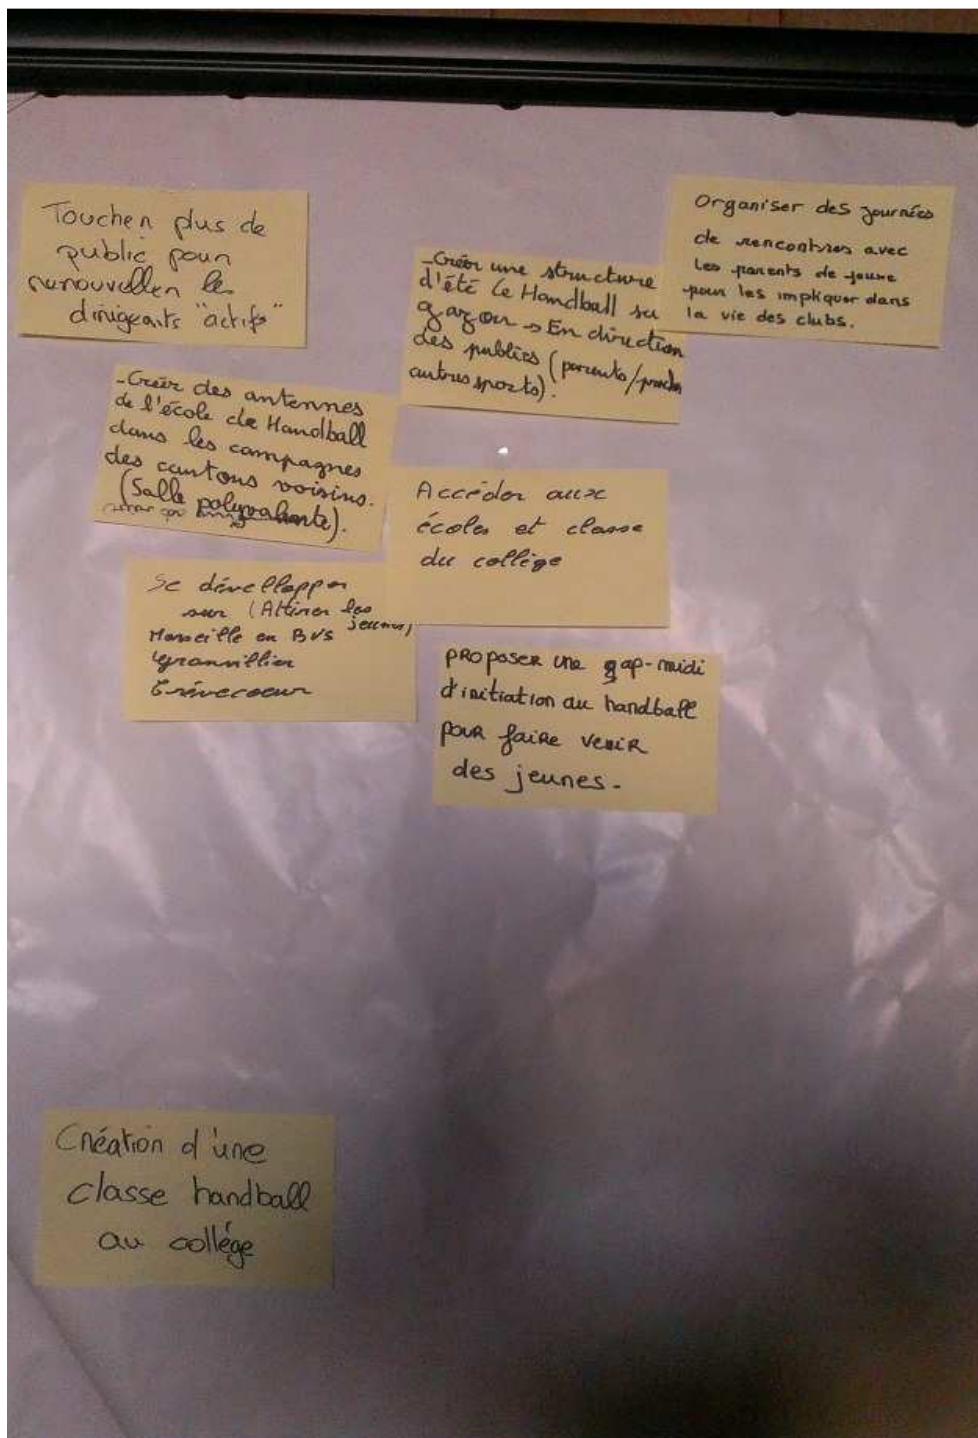 Toucher plus de
public pour
renouveller les
dirigeants "actifs"
-Créer une structure
d'été le Handball su
gazon → En direction
des publics (parents/
autres sports).
Organiser des journées
de rencontres avec
les parents de jeune
pour les impliquer dans
la vie des clubs.
-Créer des antennes
de l'école de Handball
dans les campagnes
des cantons voisins.
(Salle polyvalente).
Accéder aux
écoles et classe
du collège
Se dévellopper
sur (Attirer les
jeunes)
Marseille en BVS
Granvillier
Crèvecoeur
PROPOSER une gap-midi
d'initiation au handball
pour faire venir
des jeunes.
Création d'une
classe handball
au collége